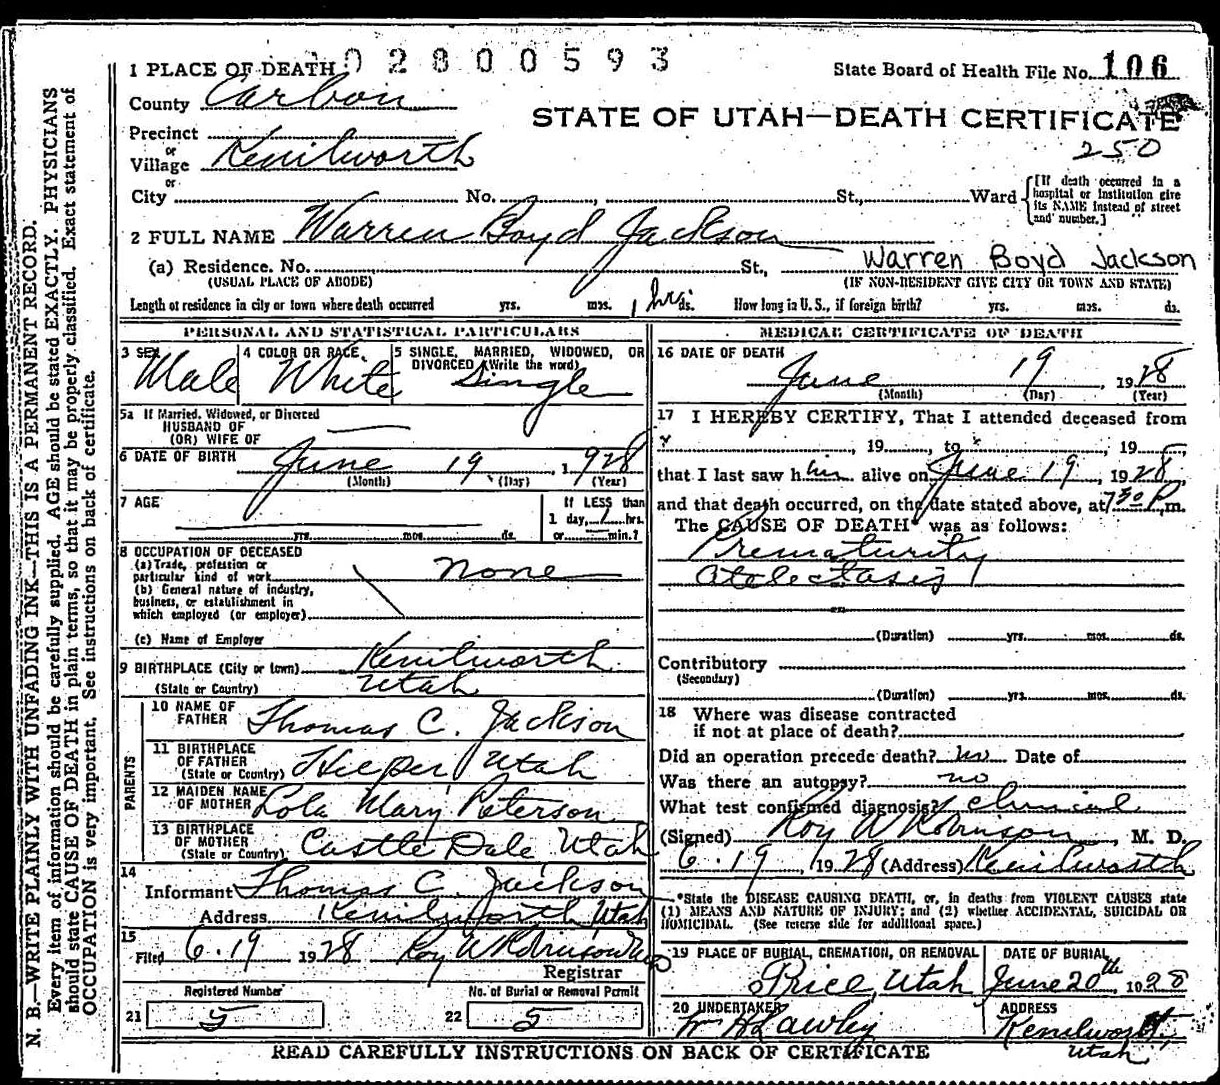 1 PLACE OF DEATH 1 0 2 8 0 0 5 9 3
State Board of Health File No. 106
County Carbon
STATE OF UTAH—DEATH CERTIFICATE
Precinct
or
Village Kenilworth
250
or
City No. , St., Ward
[If death occurred in a
hospital or institution give
its NAME instead of street
and number.]
2 FULL NAME Warren Boyd Jackson
(a) Residence. No. St., Warren Boyd Jackson
(USUAL PLACE OF ABODE) (IF NON-RESIDENT GIVE CITY OR TOWN AND STATE)
Length of residence in city or town where death occurred yrs. mos. 1 hrs. ds. How long in U. S., if foreign birth? yrs. mos. ds.
PERSONAL AND STATISTICAL PARTICULARS
3 SEX 4 COLOR OR RACE 5 SINGLE, MARRIED, WIDOWED, OR
DIVORCED (Write the word)
Male White Single
5a If Married, Widowed, or Divorced
HUSBAND OF
(OR) WIFE OF
6 DATE OF BIRTH June 19, 1928
(Month) (Day) (Year)
7 AGE If LESS than
1 day, 1 hrs.
yrs. mos. ds. or min.?
8 OCCUPATION OF DECEASED
(a) Trade, profession or
particular kind of work None
(b) General nature of industry,
business, or establishment in
which employed (or employer)
(c) Name of Employer
9 BIRTHPLACE (City or town) Kenilworth
(State or Country) Utah
PARENTS
10 NAME OF
FATHER Thomas C. Jackson
11 BIRTHPLACE
OF FATHER
(State or Country) Helper Utah
12 MAIDEN NAME
OF MOTHER Lola Mary Peterson
13 BIRTHPLACE
OF MOTHER
(State or Country) Castle Dale Utah
14
Informant Thomas C. Jackson
Address Kenilworth Utah
15
Filed 6-19 1928 Roy W Robinson MD
Registrar
Registered Number No. of Burial or Removal Permit
21 5 22 5
MEDICAL CERTIFICATE OF DEATH
16 DATE OF DEATH
June 19, 1928
(Month) (Day) (Year)
17 I HEREBY CERTIFY, That I attended deceased from
, 19 , to , 19
that I last saw him alive on June 19, 1928,
and that death occurred, on the date stated above, at 7 30 P. m.
The CAUSE OF DEATH* was as follows:
Prematurity
Atelectasis
(Duration) yrs. mos. ds.
Contributory
(Secondary)
(Duration) yrs. mos. ds.
18 Where was disease contracted
if not at place of death?
Did an operation precede death? no Date of
Was there an autopsy? no
What test confirmed diagnosis? clinical
(Signed) Roy W Robinson, M. D.
6-19, 1928 (Address) Kenilworth
*State the DISEASE CAUSING DEATH, or, in deaths from VIOLENT CAUSES state
(1) MEANS AND NATURE OF INJURY; and (2) whether ACCIDENTAL, SUICIDAL OR
HOMICIDAL. (See reverse side for additional space.)
19 PLACE OF BURIAL, CREMATION, OR REMOVAL DATE OF BURIAL
Price, Utah June 20th, 1928
20 UNDERTAKER ADDRESS
Lawley Kenilworth,
Utah
READ CAREFULLY INSTRUCTIONS ON BACK OF CERTIFICATE
N. B.—WRITE PLAINLY WITH UNFADING INK—THIS IS A PERMANENT RECORD.
Every item of information should be carefully supplied. AGE should be stated EXACTLY. PHYSICIANS
should state CAUSE OF DEATH in plain terms, so that it may be properly classified. Exact statement of
OCCUPATION is very important. See instructions on back of certificate.